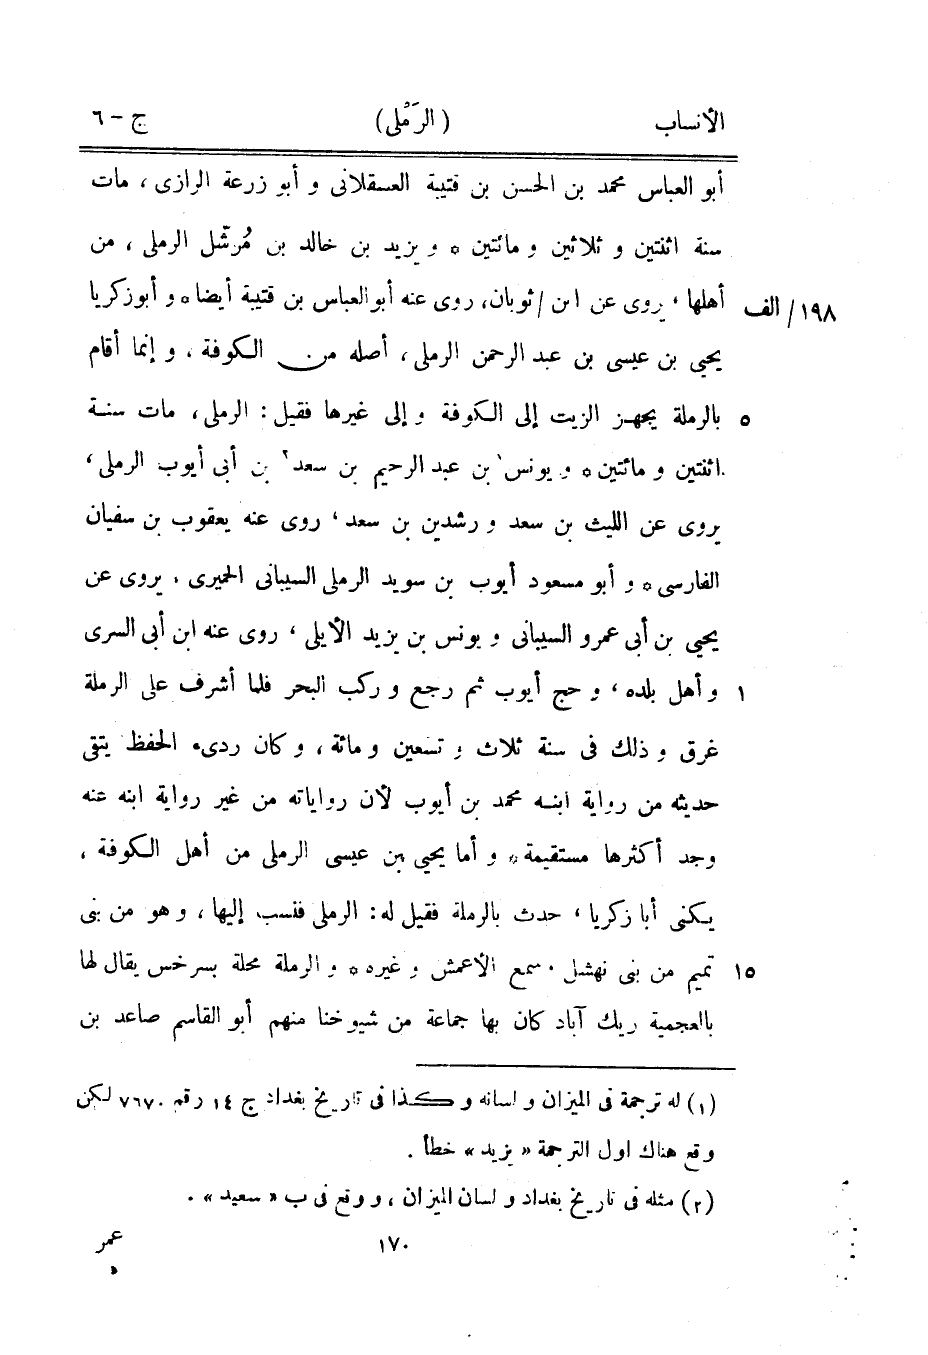 الأنساب (الرَمْلى) ج - ٦
أبو العباس محمد بن الحسن بن قتيبة العسقلانى و أبو زرعة الرازى ، مات
سنة اثنتين و ثلاثين و مائتين ه و يزيد بن خالد بن مُرشّل الرملى ، من
١٩٨/ الف أهلها ، روى عن ابن / ثوبان، روى عنه أبو العباس بن قتيبة أيضا ه و أبو زكريا
يحيى بن عيسى بن عبد الرحمن الرملى ، أصله من الكوفة ، و إنما أقام
٥ بالرملة يجهز الزيت إلى الكوفة و إلى غيرها فقيل : الرملى ، مات سنة
اثنتين و مائتين ه و يونس١ بن عبد الرحيم بن سعد٢ بن أبى أيوب الرملى ،
يروى عن الليث بن سعد و رشدين بن سعد ، روى عنه يعقوب بن سفيان
الفارسى ه و أبو مسعود أيوب بن سويد الرملى السيبانى الحميرى ، يروى عن
يحيى بن أبى عمرو السيبانى و يونس بن يزيد الأيلى ، روى عنه ابن أبى السرى
١ و أهل بلده ، و حج أيوب ثم رجع و ركب البحر فلما أشرف على الرملة
غرق و ذلك فى سنة ثلاث و تسعين و مائة ، و كان ردىء الحفظ يتقى
حديثه من رواية ابنه محمد بن أيوب لأن رواياته من غير رواية ابنه عنه
وجد أكثرها مستقيمة ه و أما يحيى بن عيسى الرملى من أهل الكوفة ،
يكنى أبا زكريا ، حدث بالرملة فقيل له : الرملى فنسب إليها ، و هو من بنى
١٥ تميم من بنى نهشل . سمع الأعمش و غيره ه و الرملة محلة بسرخس يقال لها
بالعجمية ريك آباد كان بها جماعة من شيوخنا منهم أبو القاسم صاعد بن
(١) له ترجمة فى الميزان و لسانه و كذا فى تاريخ بغداد ج ١٤ رقم ٧٦٧٠ لكن
وقع هناك اول الترجمة « يزيد » خطأ .
(٢) مثله فى تاريخ بغداد و لسان الميزان ، و وقع فى ب « سعيد » .
١٧٠ عمر